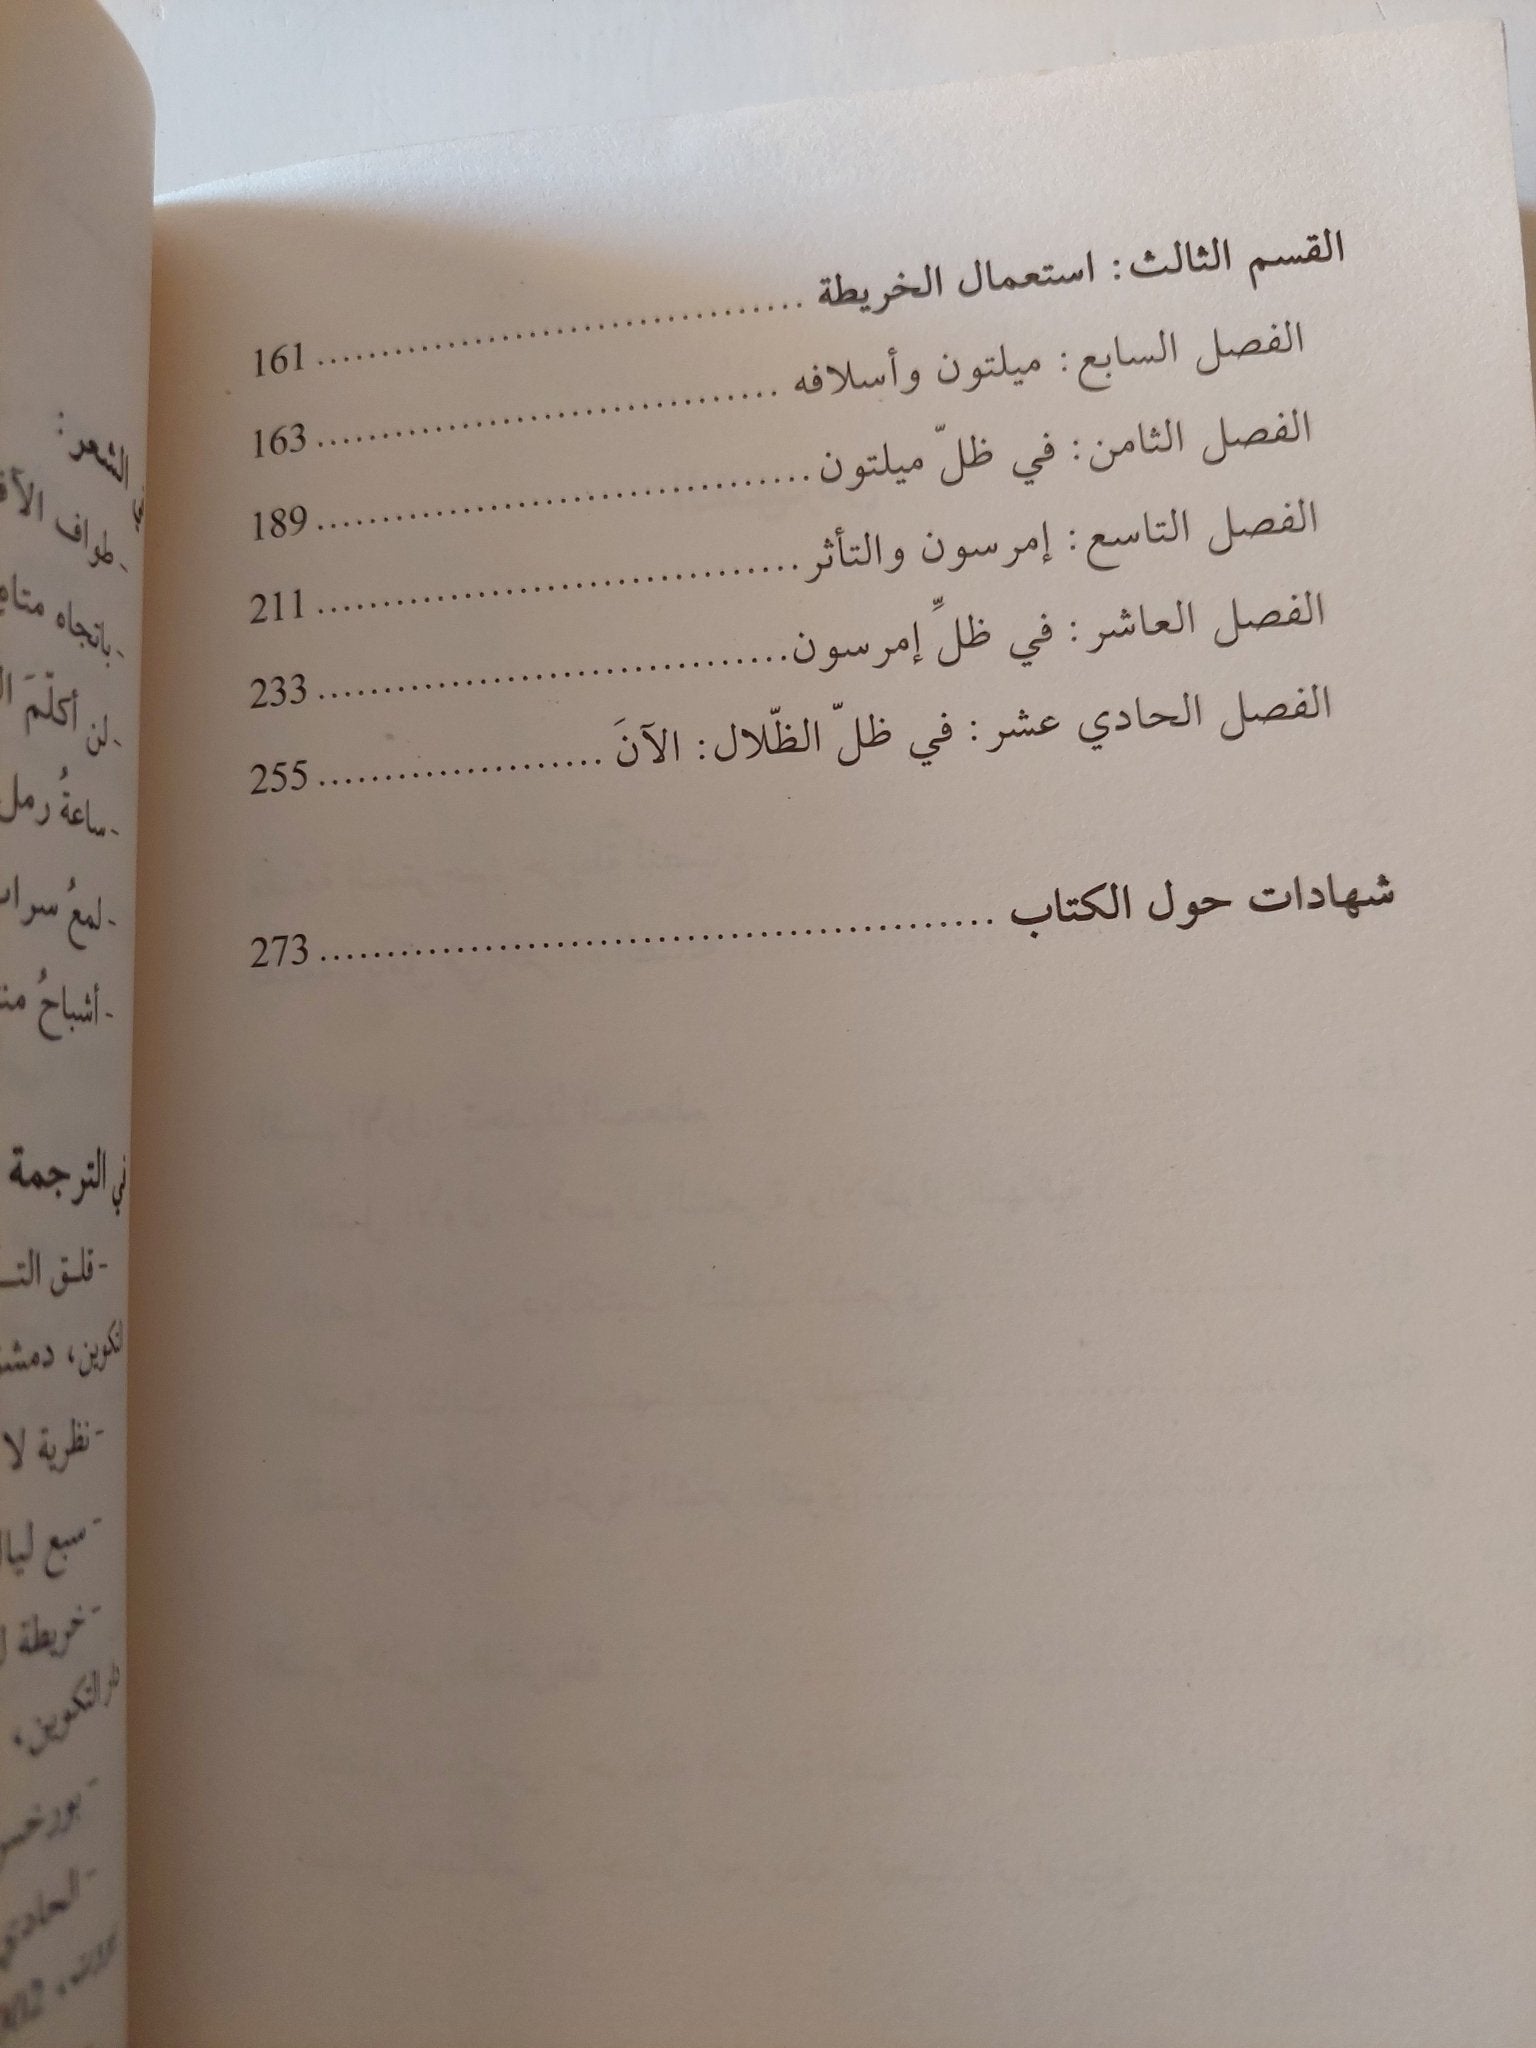 القسم الثالث: استعمال الخريطة ........................................ 161
الفصل السابع: ميلتون وأسلافه ........................................ 163
الفصل الثامن: في ظلّ ميلتون ........................................ 189
الفصل التاسع: إمرسون والتأثر ........................................ 211
الفصل العاشر: في ظلٍّ إمرسون ........................................ 233
الفصل الحادي عشر: في ظلّ الظّلال: الآنَ ........................ 255
شهادات حول الكتاب .................................................... 273
الشعر:
- طواف
- باتجاه
- لن أكلّمَ
- ساعةُ رمل
- لمعُ
- أشباحُ
في الترجمة
- قلق
التكوين، دمشق
- نظرية لا
- سبع
- خريطة
دار التكوين،